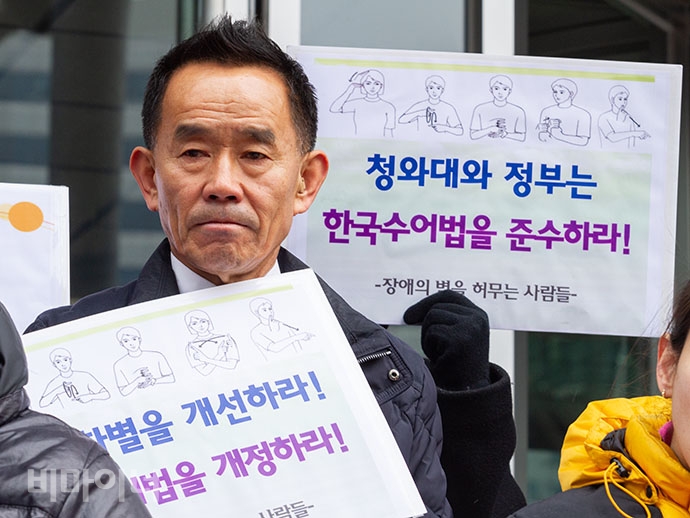 청와대와 정부는
한국수어법을 준수하라!
-장애의 벽을 허무는 사람들-
차별을 개선하라!
어법을 개정하라!
는 사람들-
비마이